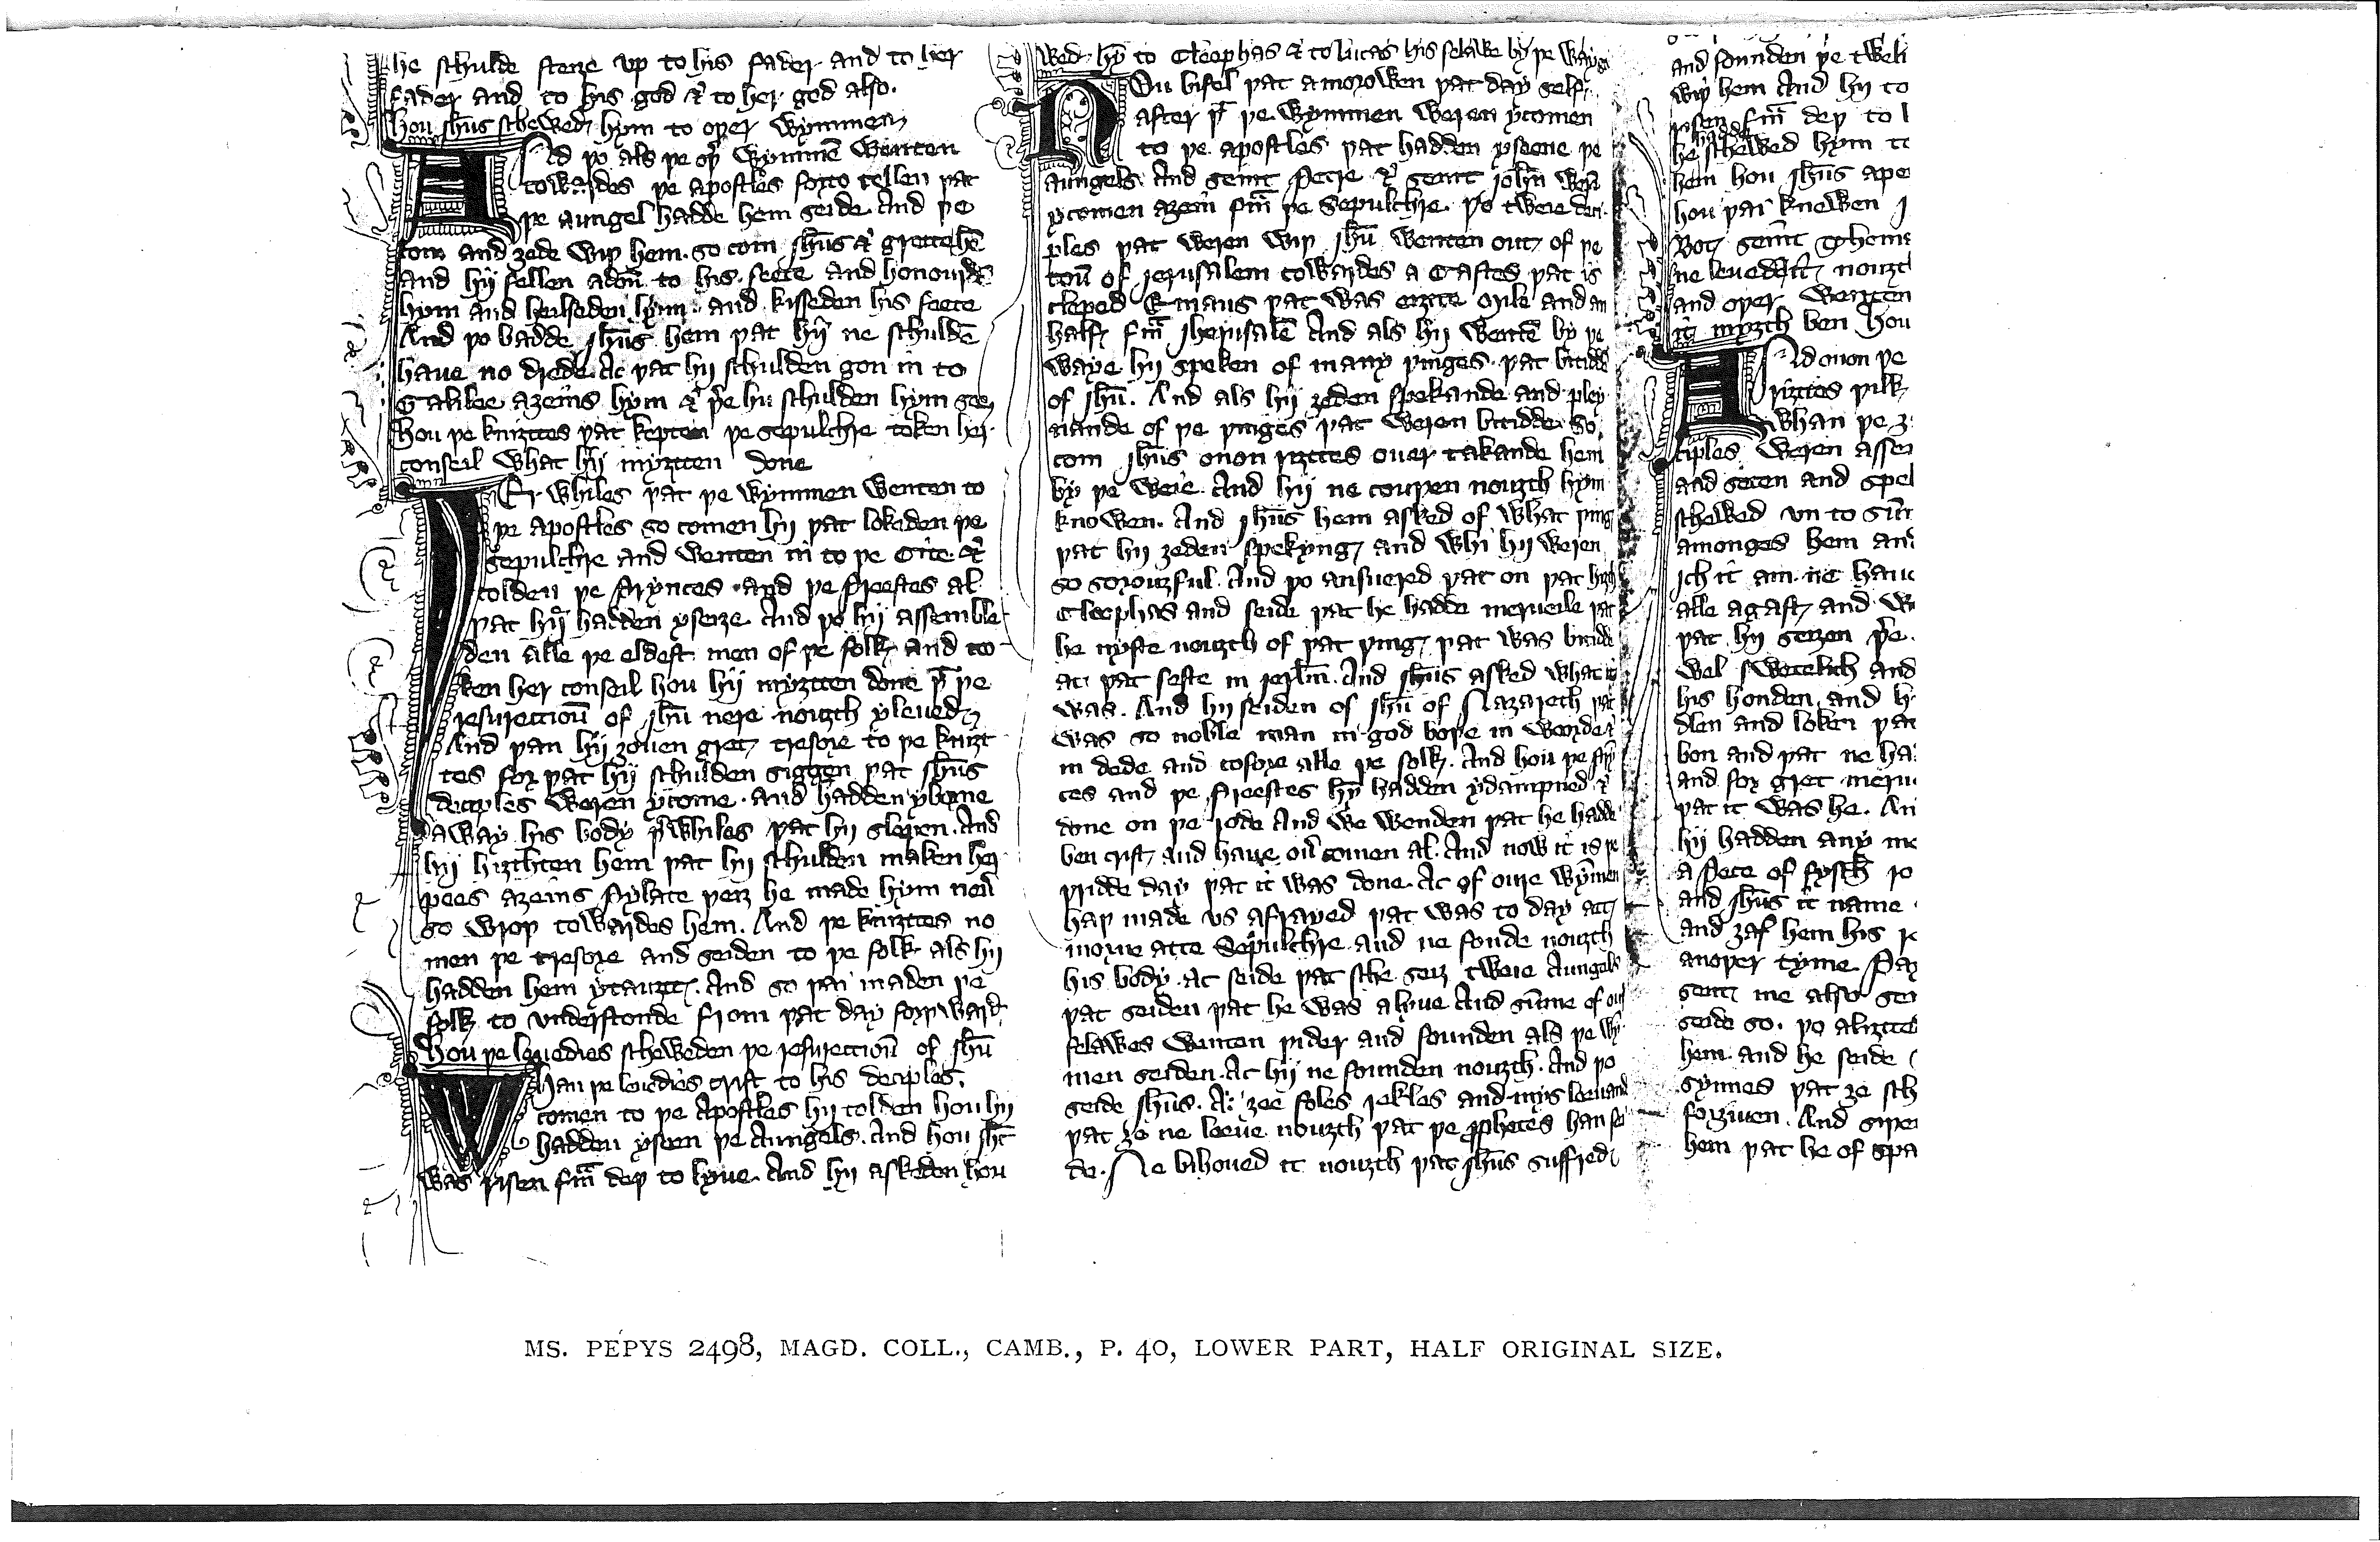 he schulde steiȝe vp to his fader and to her
fader and to his god & to her god also.
hou jħus schewed hym to oþer wymmen
And þo als þe oþ wymmē wenten
towardes þe apostles forto tellen þat
þe aungel hadde hem seide. And þe
com and ȝede wiþ hem. so com jħus & grette hē
and hij fellen adoū to his feete and honourde
hym and heilseden hym. and kisseden his feete
And þo badde jħus hem þat hij ne schuldē
haue no drede. Ac þat hij schulden gon in to
Galilee aȝeins hym & þe hij schulden hym seen
hou þe kniȝttes þat kepten þe sepulchre token her
conseil what hij miȝtten done
Þer whiles þat þe wymmen wenten to
þe apostles so comen hij þat lokeden þe
sepulchre and wenten in to þe Cite. &
tolden þe prynces. and þe preestes al
þat hij hadden yseiȝe. And þo hij assemble
den alle þe eldest men of þe folk and to
ken her conseil hou hij miȝtten done þ̄ þe
resurecciou̅ of jħu nere nouȝth yleued
And þan hij ȝouen gret tresore to þe kniȝt
tes for þat hij schulden siggen þat jħus
deciples weren ycome. and hadden yborne
away his body þ whiles þat hij slepen. And
hij hiȝthten hem þat hij schulden maken her
pees aȝeins Pylate þeiȝ he made hym neu̅
so wroþ towardes hem. And þe kniȝttes no
men þe tresore and seiden to þe folk als hij
hadden hem ytauȝt. And so þai maden þe
folk to vnderstonde from þat day forþward
Hou þe leuedies scheweden þe resurecciou̅ of jħu
Whan þe leuedies crist to his deciples.
comen to þe Apostles hij tolden hou hij
hadden yseen þe Aungels. And hou jħc
was risen frā deþ to lyue. And hij askeden hou
wed hȳ to Cleophas & to lucas his felawe by þe waye
Nou bifel þat amorowen þat day self
after þ̄ þe wymmen weren ycomen
to þe apostles þat hadden yseene þe
aungels. And seint Petre & seint joħn weren
ycomen aȝein frā þe sepulchre. Þo tweie deci
ples þat weren wiþ jħu wenten out of þe
tou̅ of jerusalem towardes a Castel þat is
cleped Emaus þat was eiȝtte myle and an
half frā jherusalē And als hij wentē by þe
waye hij speken of many þinges. þat bitidde
of jħu. And als hij ȝeden spekande and pley
nande of þe þinges þat weren bitidde. So
com jħus onon riȝttes ouer takande hem
by þe weie. And hij ne couþen nouȝth hym
knowen. And jħus hem asked of what þing
þat hij ȝeden spekyng and whi hij weren
so sorouȝful. And þo ansuered þat on þat hiȝth
Cleophas and seide þat he hadde merueile þat
he nyste nouȝth of þat þing þat was bitidde
at þat feste in jerlm̅. And jħus asked what it
was. And hij seiden of jħu of Nazareth þat
was so noble man in god boþe in worde &
in dede and tofore alle þe folk. And hou þe prī
ces and þe preestes hȳ hadden ydampned &
done on þe rode And we wenden þat he hadde
ben crist, and haue ou̅comen al. And now it is þe
þridde day þat it was done. Ac of oure wȳmen
haþ made vs afrayed þat was to day att
morwe atte Sepulchre and ne fonde nouȝth
his body. ac seide þat sche seiȝ tweie Aungels
þat seiden þat he was alyue And sūme of our
felawes wenten þider and founden als þe wȳ
men seiden. Ac hij ne founden nouȝth. And þo
seide jħus. A: ȝee foles rekles and mys leeuand
þat ȝe ne leeue nouȝth þat þe prophetes han sei
de. Ne bihoued it nouȝth þat jħus suffred
and founden þe twelf
wiþ hem And hij to
risen frā deþ to l
he hadde schewed hym to
hem hou jħus ape
hou þai knewen
Bot seint Thoma
ne leued it nouȝt
and oþer wenten
it miȝth ben Hou
And onon þe
riȝttes þilk
whan þe
ciples weren assem
and seten and spek
schewed vn to
amonges hem and
jch it am. ne haue
alle agast, and w
þat hij seiȝen þe.
wel swetelich and
his honden and h
dlen and loken þat
bon and þat ne ha
and for gret meru
þat it was he. An
hij hadden any me
a Pece of fyssh ro
and jħus it name
and ȝaf hem his
anoþer tyme. Pa
sent me also sen
seide so. þo aliȝtte
hem. and he seide
synnes þat ȝe sch
forȝiuen. And
hem þat he of spa
MS. PEPYS 2498, MAGD. COLL., CAMB., P. 40, LOWER PART, HALF ORIGINAL SIZE.